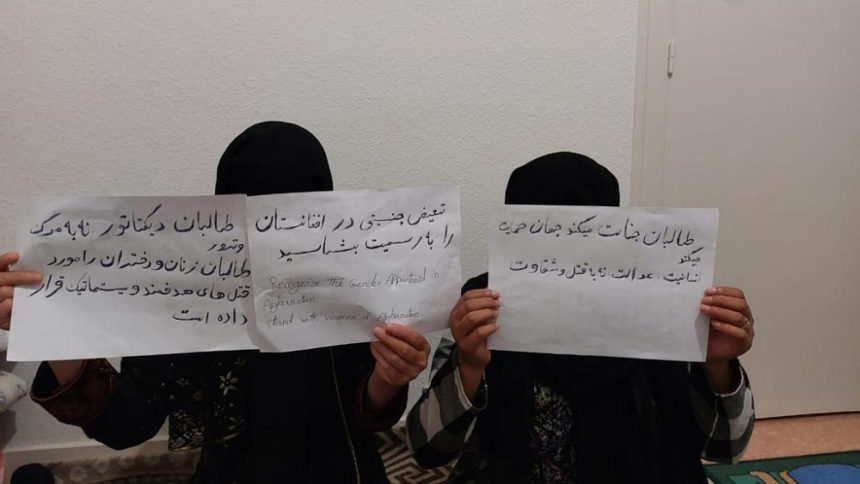 طالبان دیکتاتور نه به مرگ
وترور
طالبان زنان و دختران را مورد
قتل های هدفمند و سیستماتیک قرار
داده است
تبعیض جنسیتی در افغانستان
را به رسمیت بشناسید
Recognize the Gender Apartheid in
Afghanistan
stand with women of Afghanistan
طالبان جنات میکند جهان حمایت
میکند
انسانیت، عدالت، نه به قتل و شقاوت